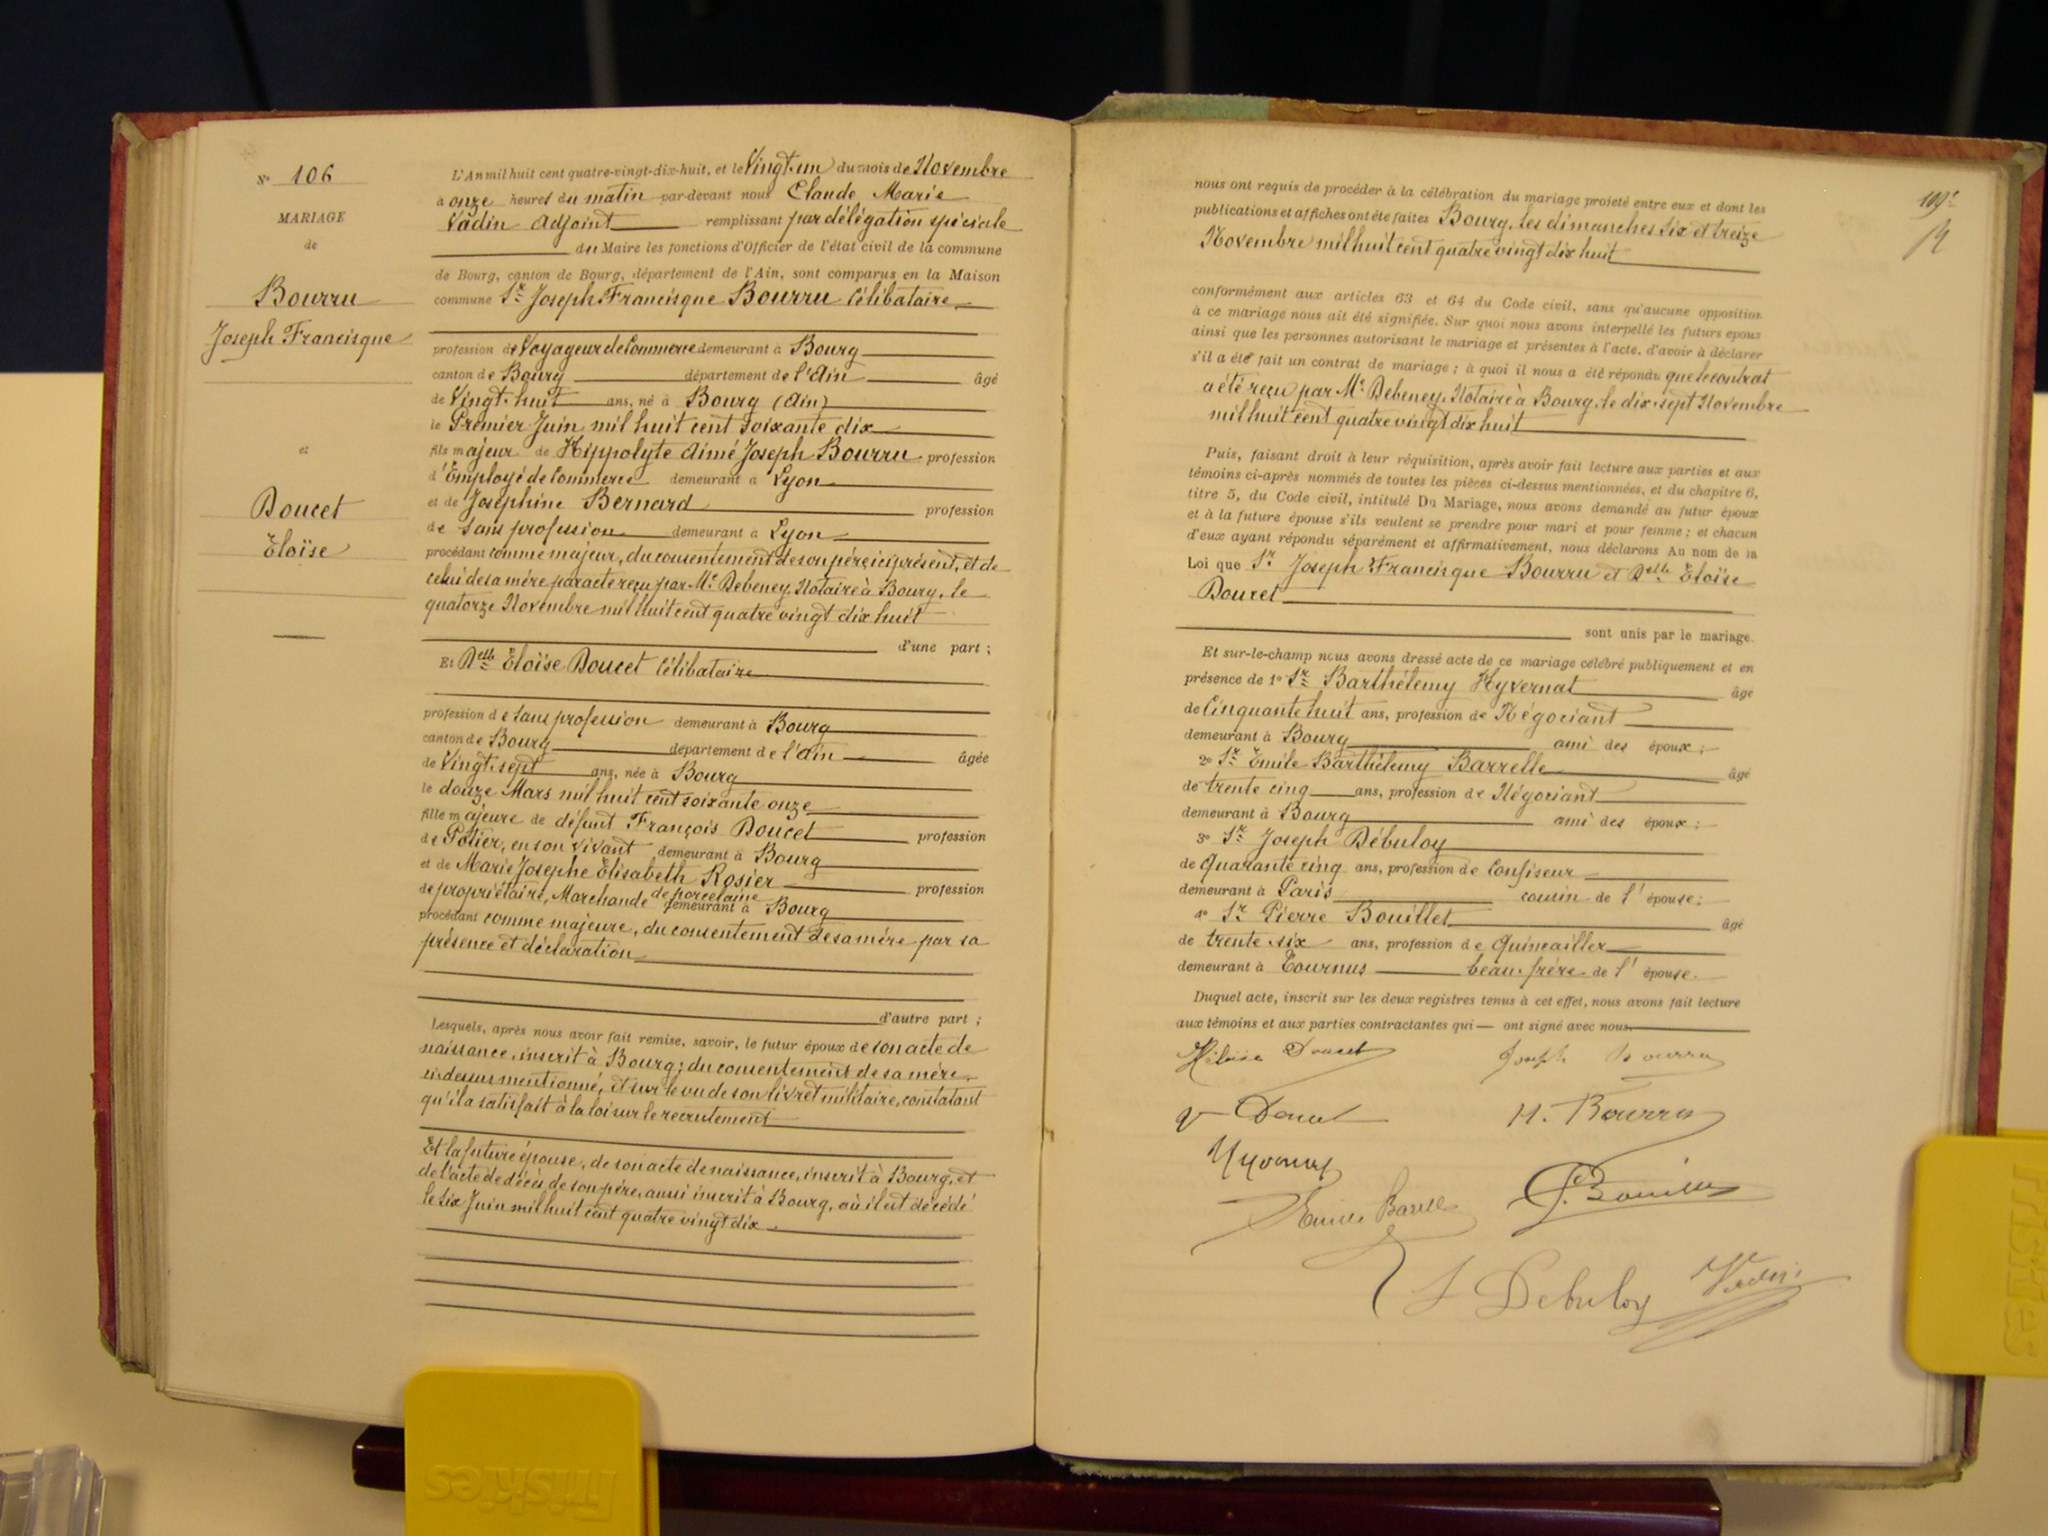 N° 106
MARIAGE
de
Bourru
Joseph Francisque
et
Doucet
Éloïse
L'An mil huit cent quatre-vingt-dix-huit, et le Vingt-un du mois de Novembre
à onze heures du matin par-devant nous Claude Marie
Vadin Adjoint remplissant par délégation spéciale
du Maire les fonctions d'Officier de l'état civil de la commune
de Bourg, canton de Bourg, département de l'Ain, sont comparus en la Maison
commune Sr Joseph Francisque Bourru célibataire
profession de Voyageur de Commerce demeurant à Bourg
canton de Bourg département de l'Ain âgé
de Vingt-huit ans, né à Bourg (Ain)
le Premier Juin mil huit cent soixante dix
fils majeur de Hippolyte Aimé Joseph Bourru profession
d'Employé de Commerce demeurant à Lyon
et de Joséphine Bernard profession
de sans profession demeurant à Lyon
procédant comme majeur, du consentement de son père, ici présent, et de
celui de sa mère par acte reçu par Me Debeney, Notaire à Bourg, le
quatorze Novembre mil huit cent quatre vingt dix huit
d'une part ;
Et Delle Éloïse Doucet célibataire
profession de sans profession demeurant à Bourg
canton de Bourg département de l'Ain âgée
de Vingt-sept ans, née à Bourg
le douze Mars mil huit cent soixante onze
fille majeure de défunt François Doucet profession
de Potier, en son vivant demeurant à Bourg
et de Marie Josephe Élisabeth Rosier profession
de propriétaire, Marchande de porcelaine demeurant à Bourg
procédant comme majeure, du consentement de sa mère par sa
présence et déclaration
d'autre part ;
Lesquels, après nous avoir fait remise, savoir, le futur époux de son acte de
naissance, inscrit à Bourg ; du consentement de sa mère
ci-dessus mentionné, et sur le vu de son livret militaire, constatant
qu'il a satisfait à la loi sur le recrutement
Et la future épouse, de son acte de naissance, inscrit à Bourg, et
de l'acte de décès de son père, aussi inscrit à Bourg, où il est décédé
le six Juin mil huit cent quatre vingt dix
109e
nous ont requis de procéder à la célébration du mariage projeté entre eux et dont les
publications et affiches ont été faites Bourg, les dimanches six et treize
Novembre mil huit cent quatre vingt dix huit
conformément aux articles 63 et 64 du Code civil, sans qu'aucune opposition
à ce mariage nous ait été signifiée. Sur quoi nous avons interpellé les futurs époux
ainsi que les personnes autorisant le mariage et présentes à l'acte, d'avoir à déclarer
s'il a été fait un contrat de mariage ; à quoi il nous a été répondu que le contrat
a été reçu par Me Debeney, Notaire à Bourg, le dix-sept Novembre
mil huit cent quatre vingt dix huit
Puis, faisant droit à leur réquisition, après avoir fait lecture aux parties et aux
témoins ci-après nommés de toutes les pièces ci-dessus mentionnées, et du chapitre 6,
titre 5, du Code civil, intitulé Du Mariage, nous avons demandé au futur époux
et à la future épouse s'ils veulent se prendre pour mari et pour femme ; et chacun
d'eux ayant répondu séparément et affirmativement, nous déclarons Au nom de la
Loi que Sr Joseph Francisque Bourru et Delle Éloïse
Doucet
sont unis par le mariage.
Et sur-le-champ nous avons dressé acte de ce mariage célébré publiquement et en
présence de 1° Sr Barthélemy Hyvernat âgé
de Cinquante huit ans, profession de Négociant
demeurant à Bourg ami des époux ;
2° Sr Émile Barthélemy Barrelle âgé
de trente cinq ans, profession de Négociant
demeurant à Bourg ami des époux ;
3° Sr Joseph Débuloy
de Quarante cinq ans, profession de Confiseur
demeurant à Paris cousin de l'épouse ;
4° Sr Pierre Bouillet âgé
de trente-six ans, profession de Quincailler
demeurant à Tournus beau-frère de l'épouse.
Duquel acte, inscrit sur les deux registres tenus à cet effet, nous avons fait lecture
aux témoins et aux parties contractantes qui — ont signé avec nous
Héloïse Doucet Joseph Bourru
Ve Doucet H. Bourru
Hyvernat
P. Bouillet
Emile Barrelle
J Debuloy Vadin
Friskies
Friskies